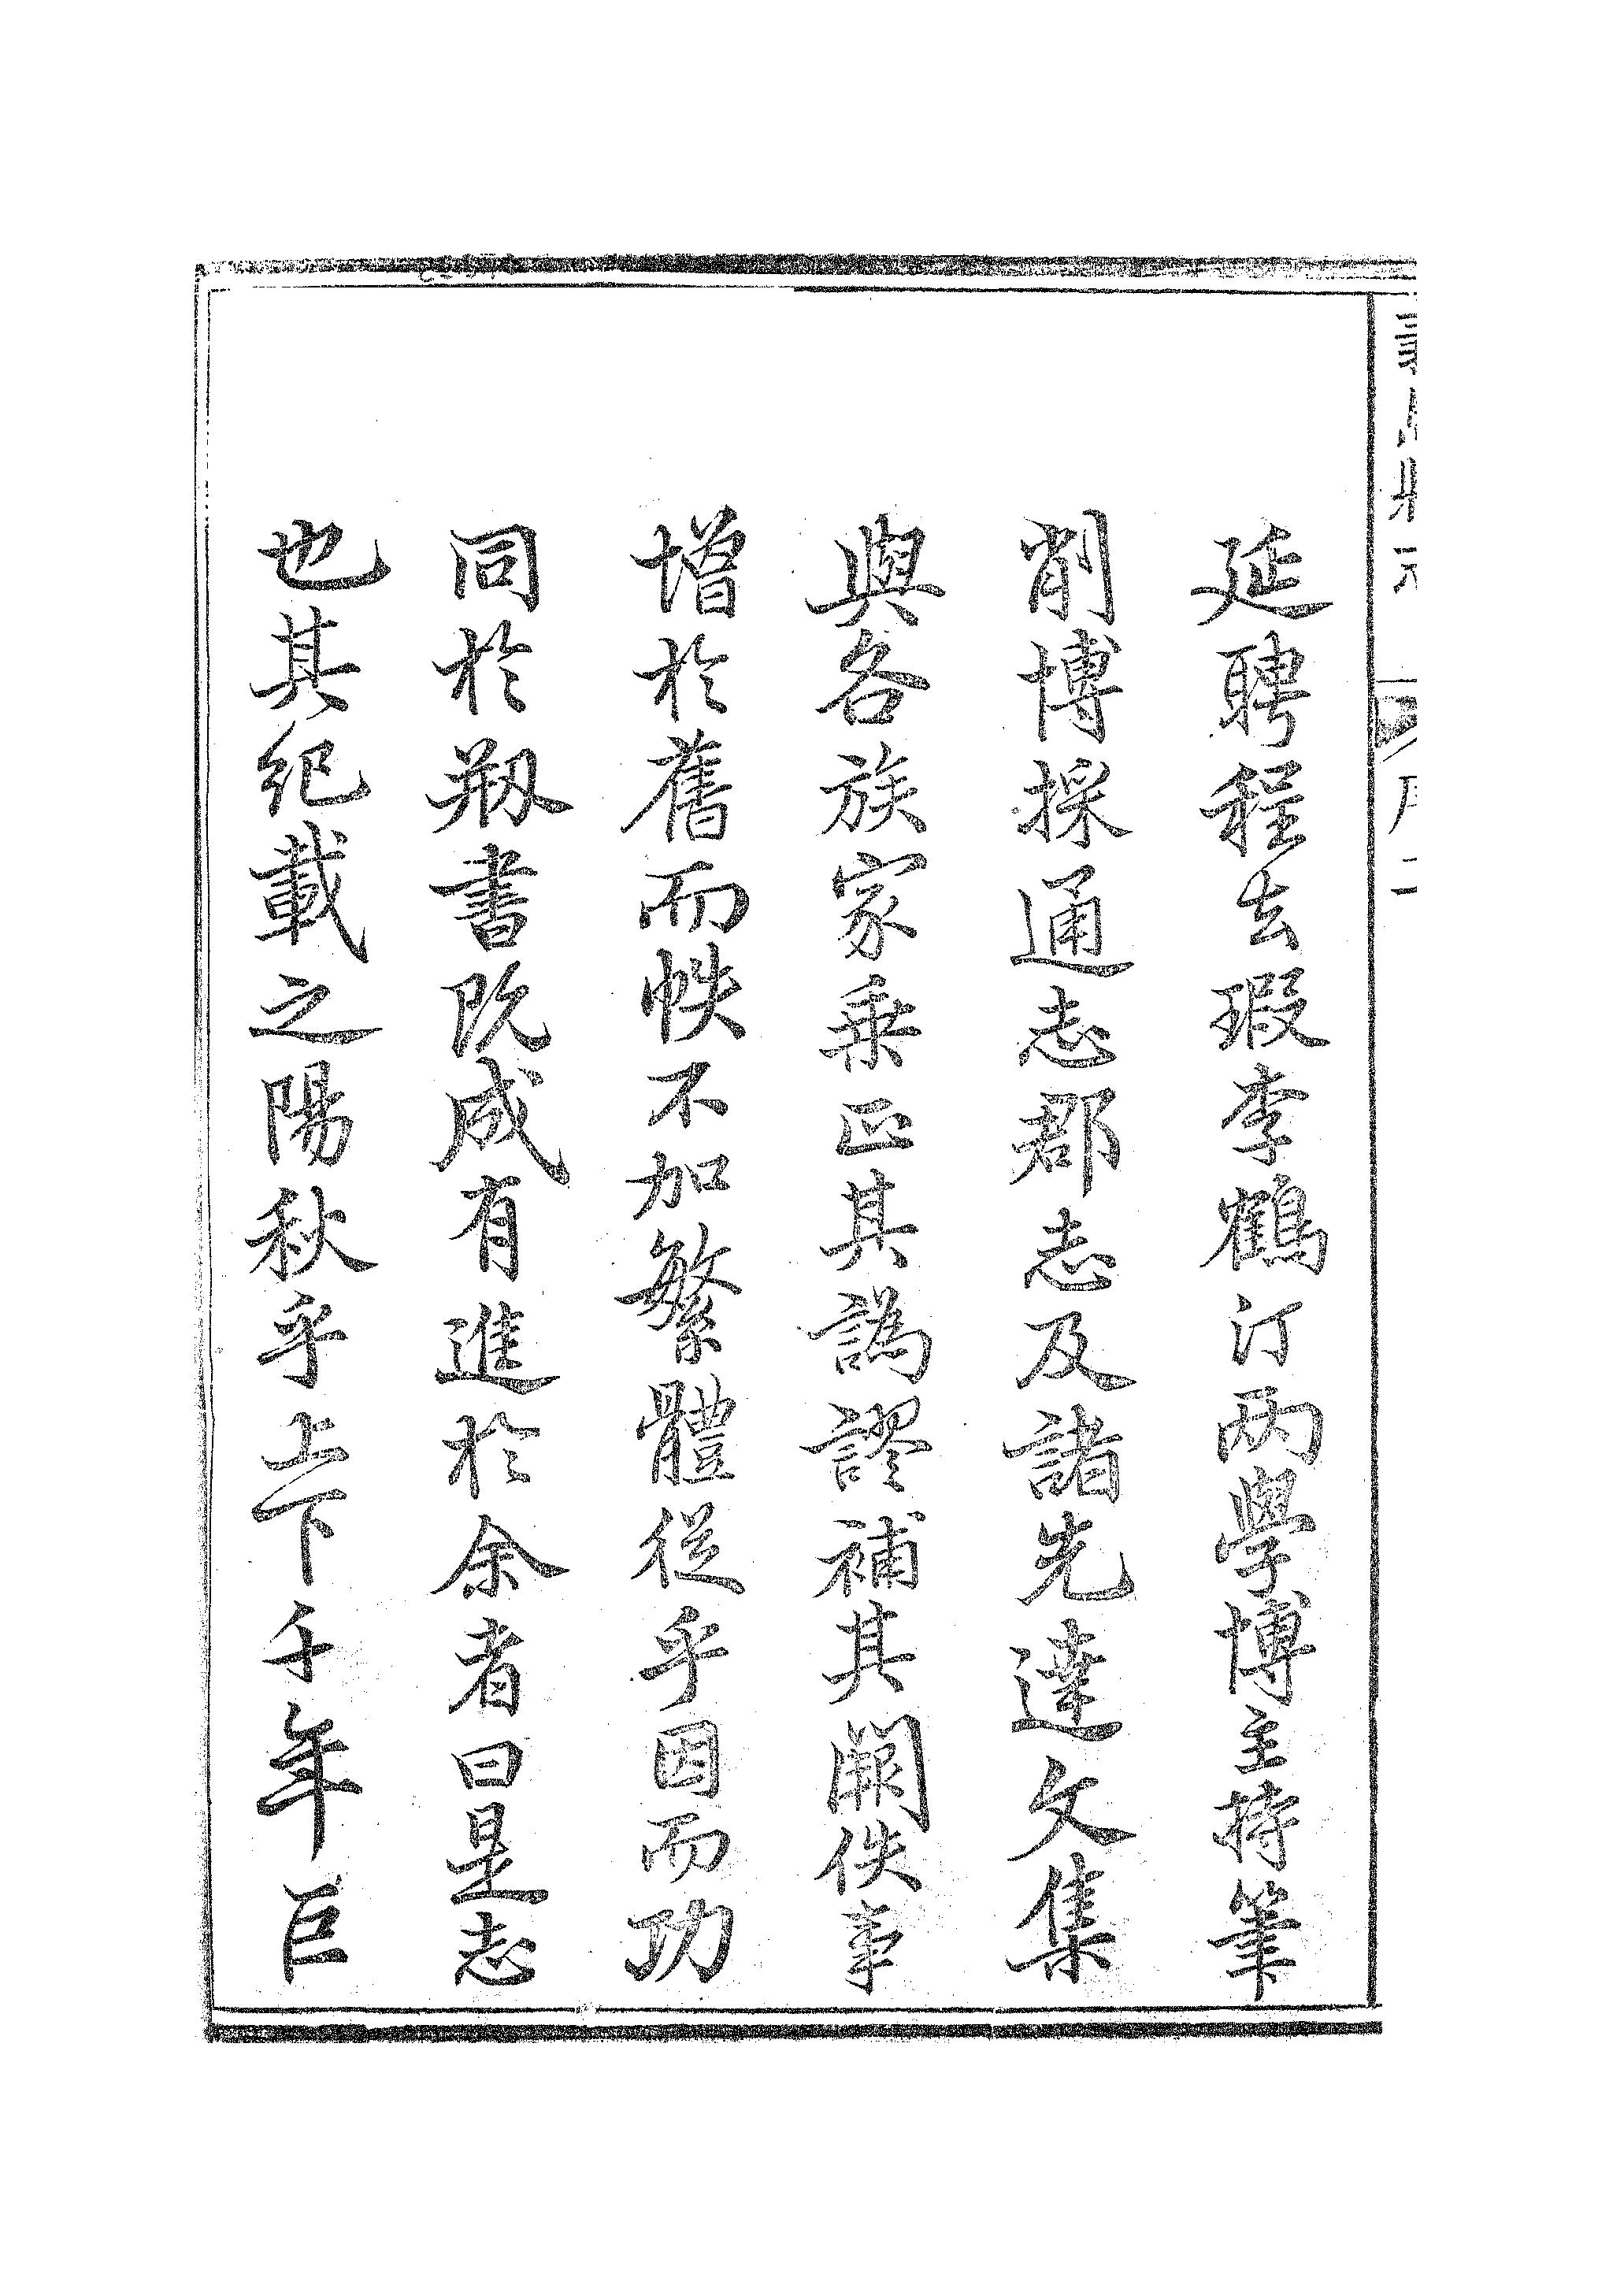 延聘程去瑕李鶴汀兩學博主持筆
削博採通志郡志及諸先達文集
與各族家乗正其譌謬補其闕佚事
增於舊而帙不加繁體從乎因而功
同於剏書既成有進於余者曰是志
也其紀載之陽秋乎上下千年巨